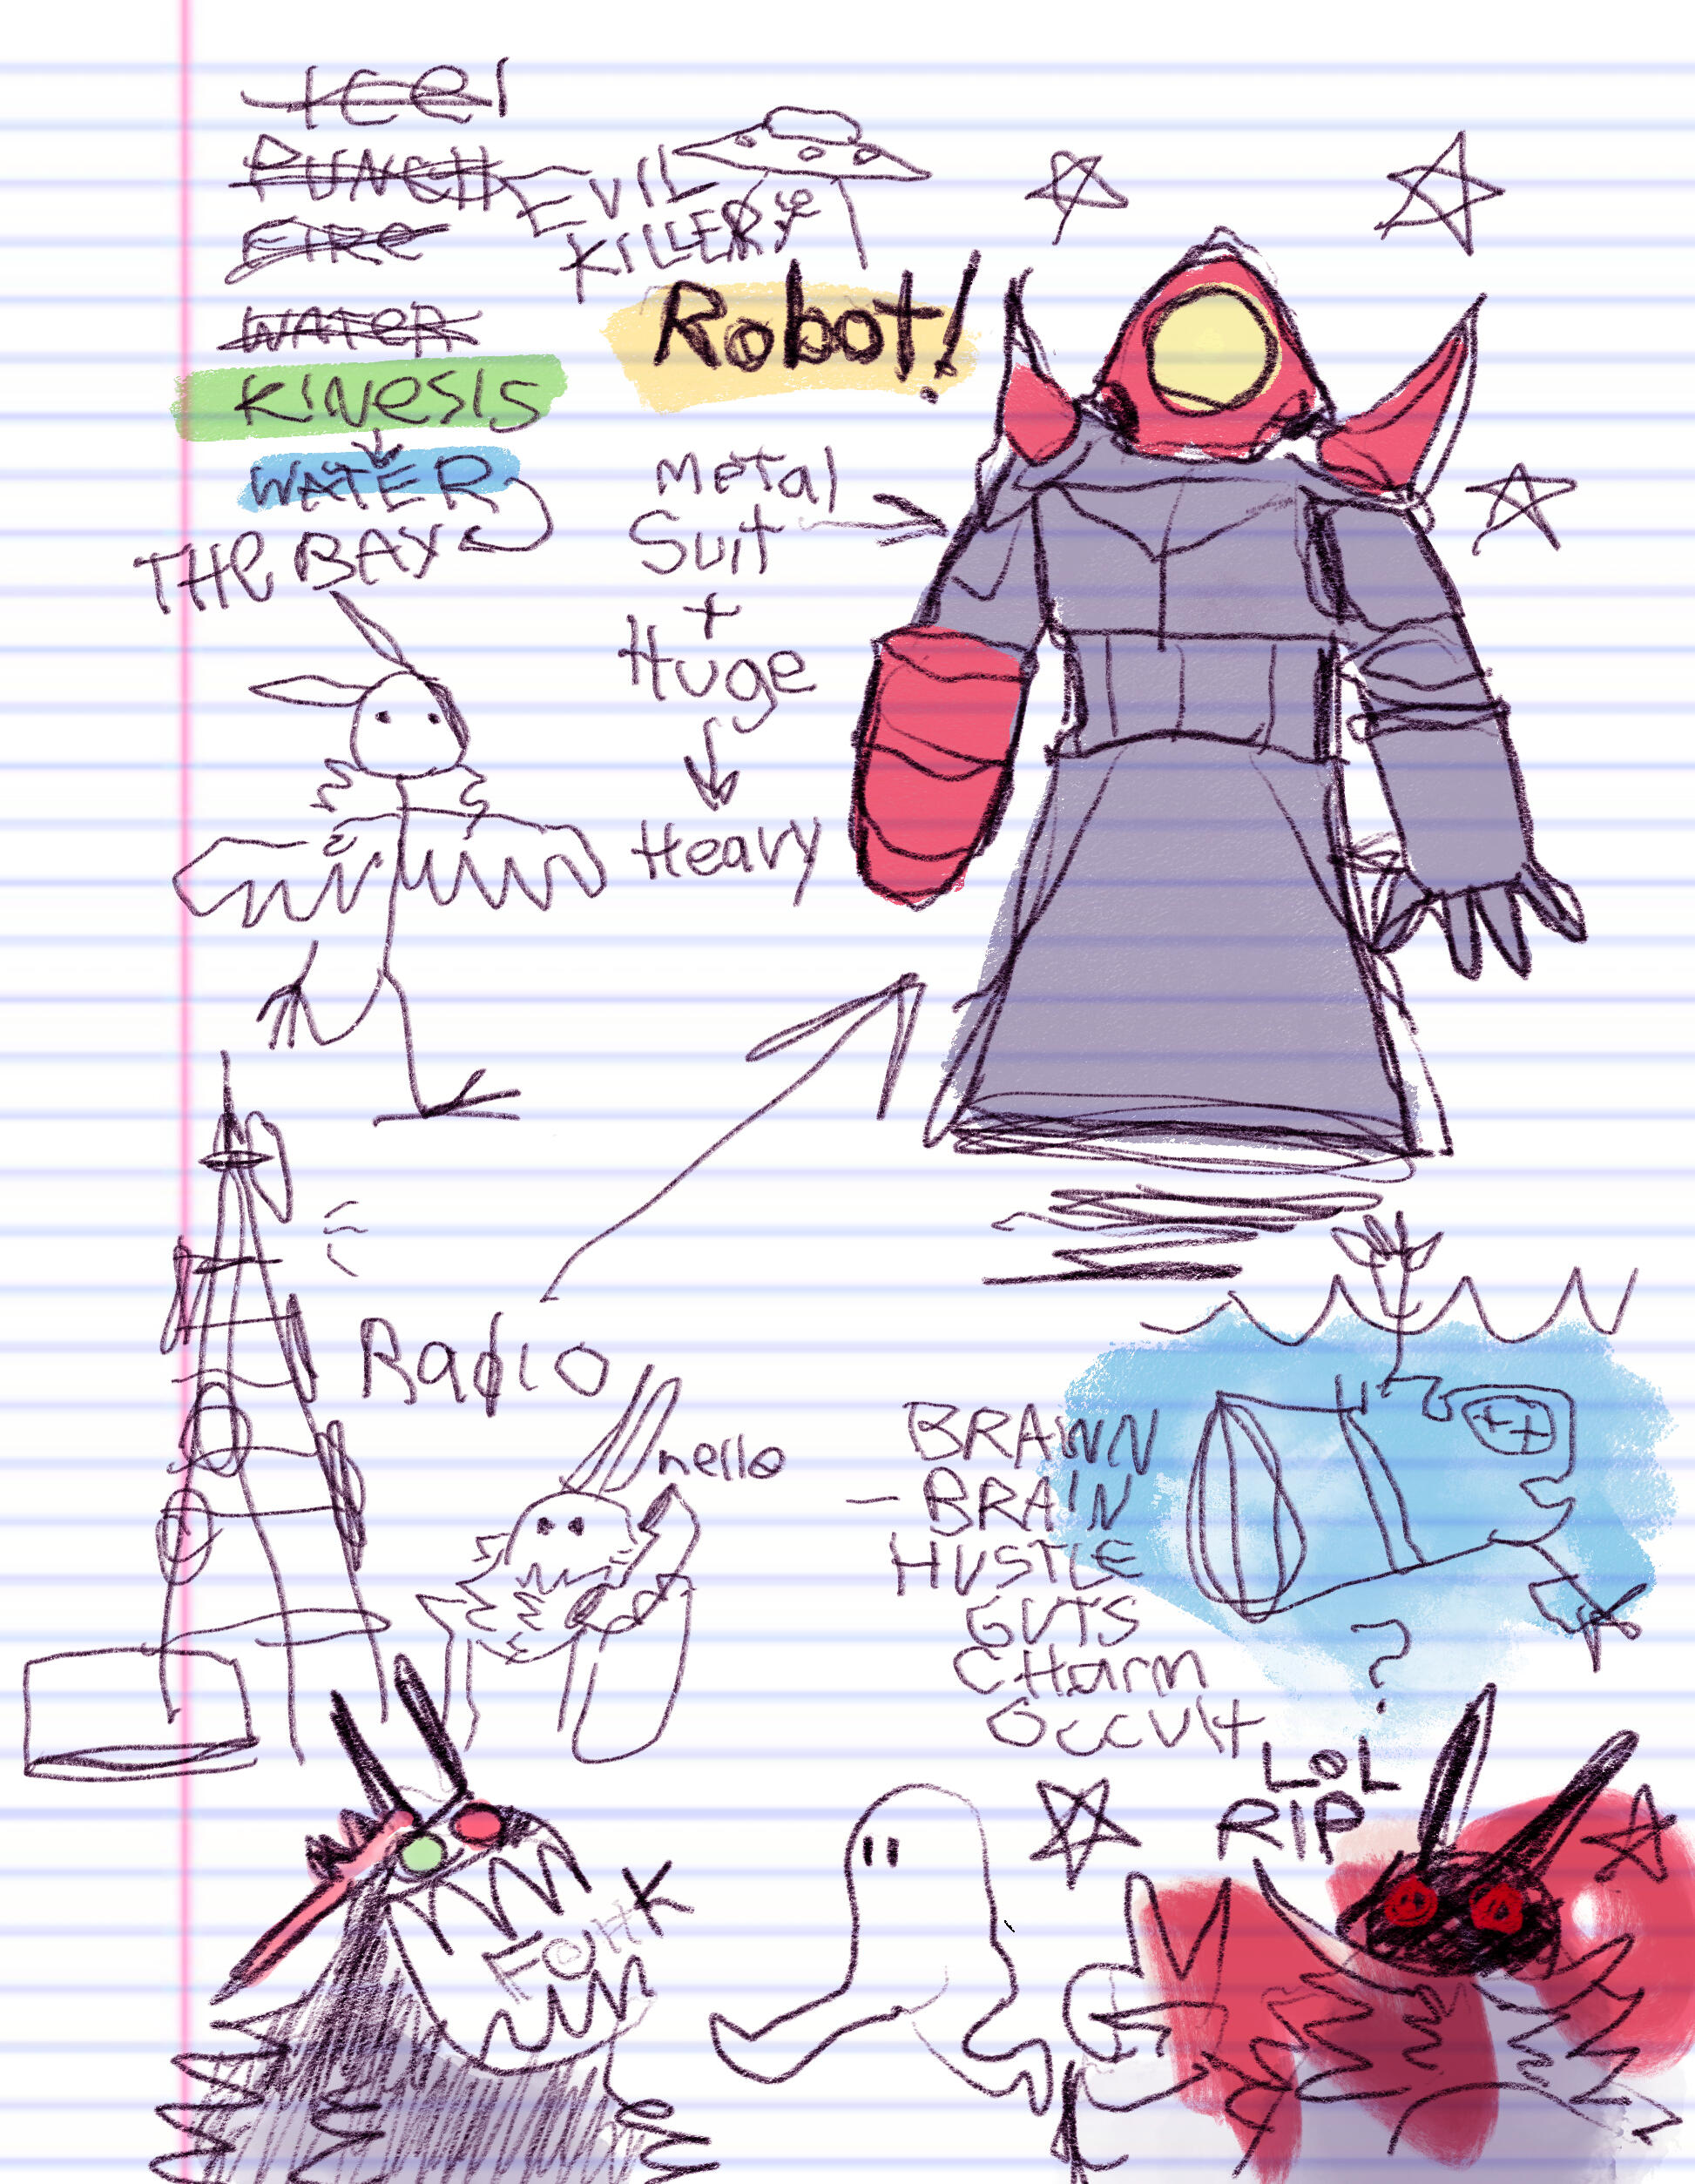 ice!
PUNCH
FIRE
WATER
KINESIS
WATER
THE BAY
EVIL
KILLER
Robot!
Metal
Suit
+
Huge
Heavy
Radio
hello
BRAWN
- BRAIN
HUSTLE
GUTS
CHarm
OCCULT
?
LOL
RIP